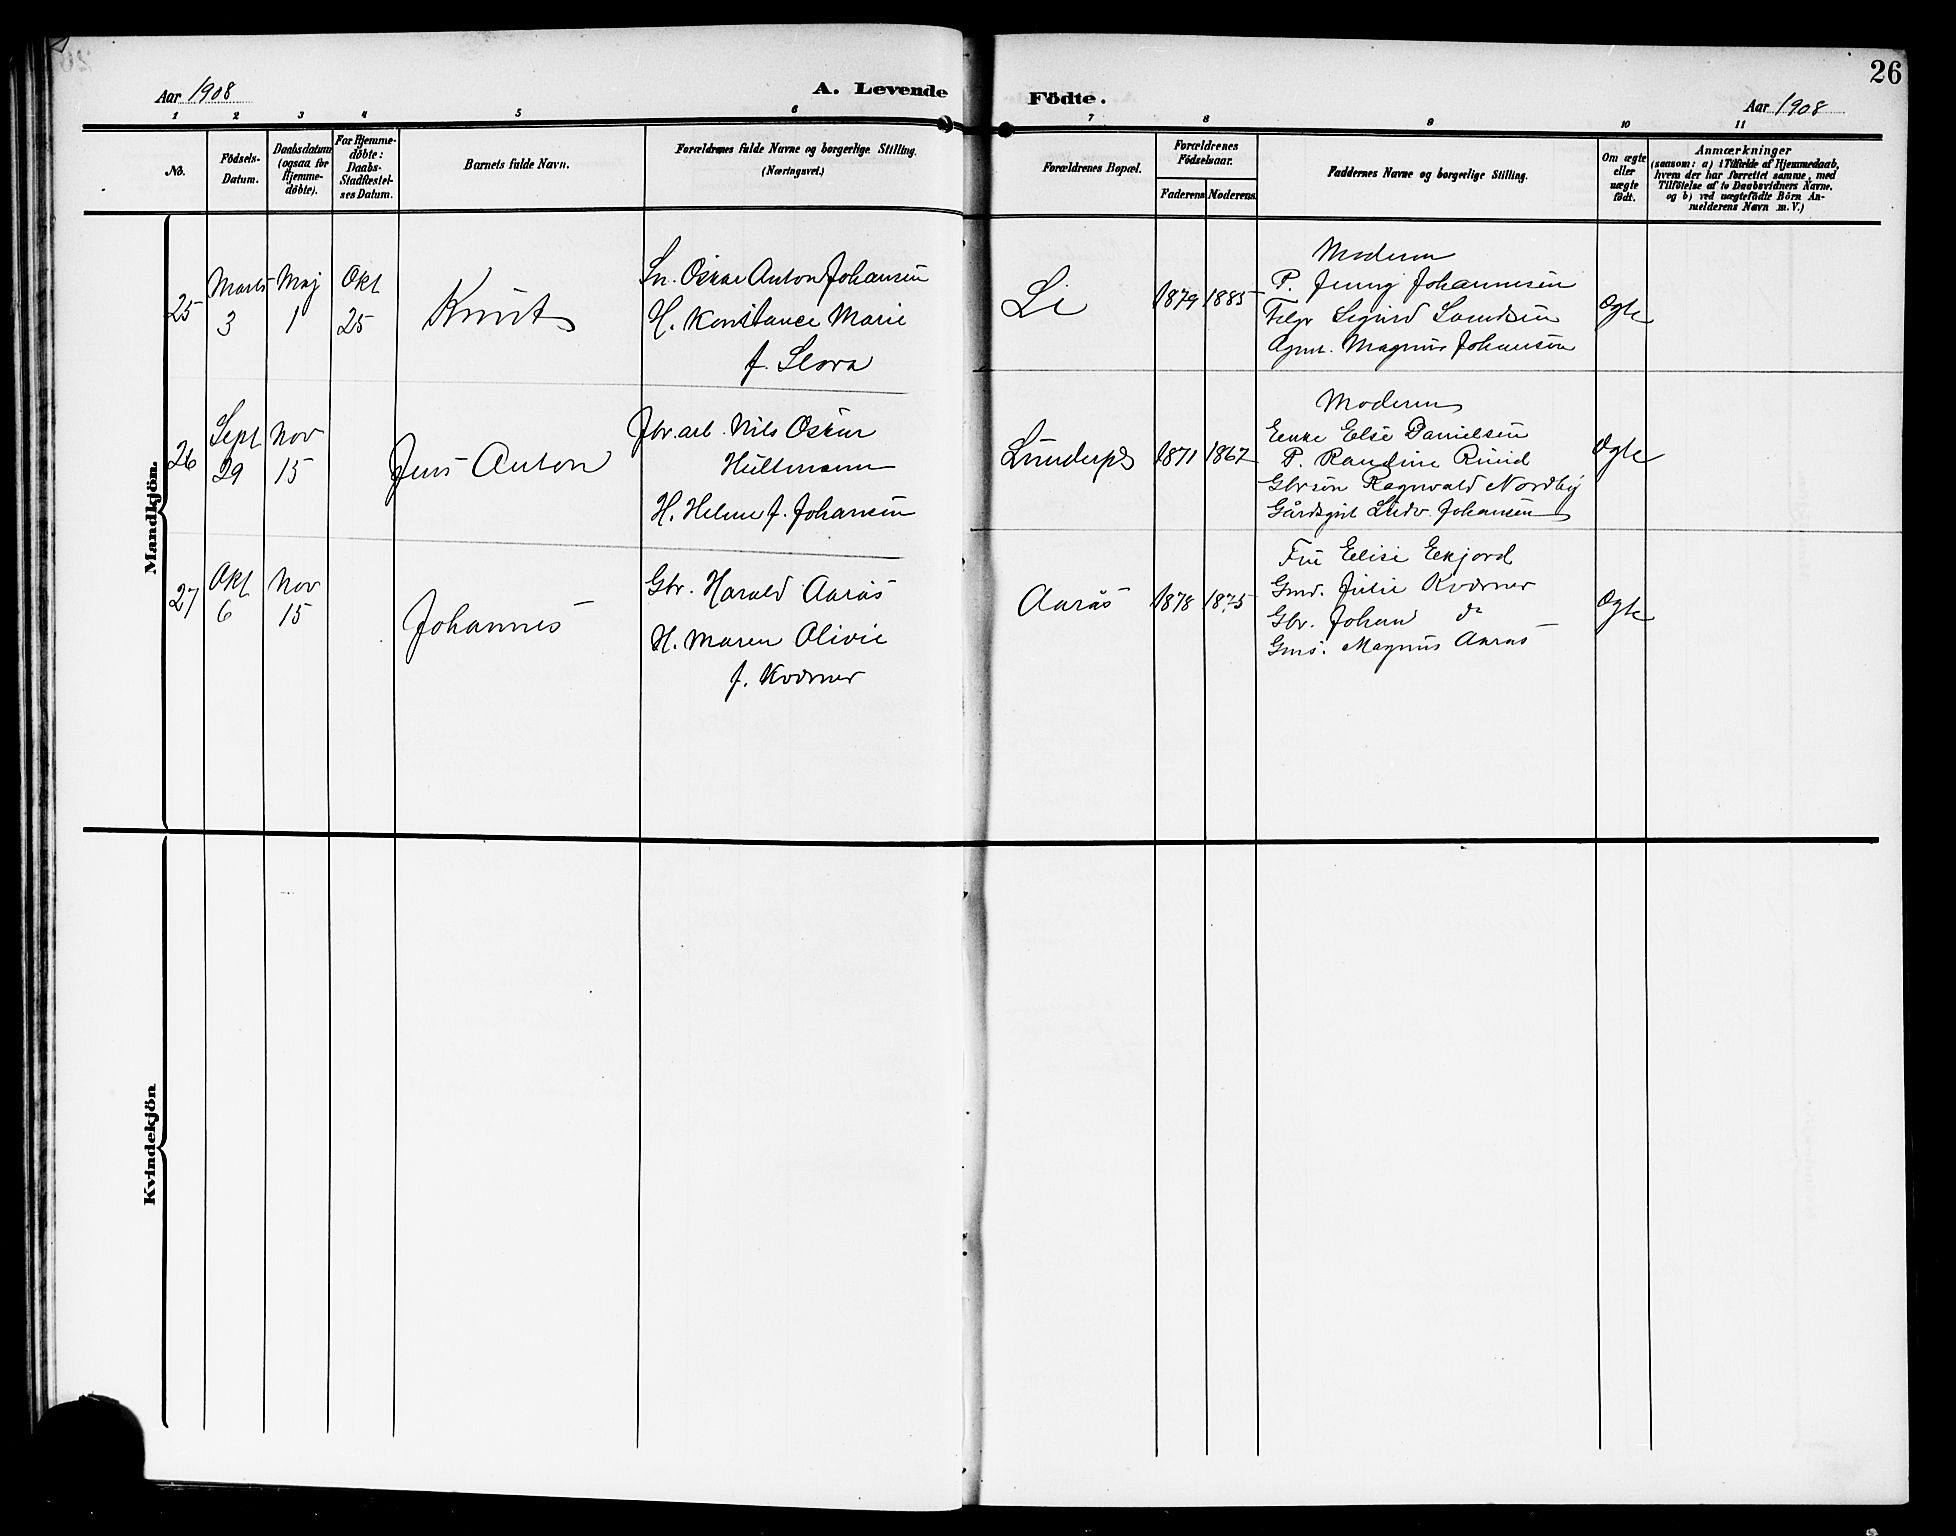 26
Aar 1908
A. Levende
Födte.
Aar 1908
1 2 3 4 5 6 7 8 9 10 11
No.
Födsels-
Datum.
Daabsdatum
(ogsaa for
Hjemme-
döbte).
For Hjemme-
döbte:
Daabs-
Stadfæstel-
ses Datum.
Barnets fulde Navn.
Forældrenes fulde Navne og borgerlige Stilling.
(Næringsvei.)
Forældrenes Bopæl.
Forældrenes
Födselsaar.
Faderens Moderens
Faddernes Navne og borgerlige Stilling.
Om ægte
eller
uægte
født.
Anmærkninger
(saasom: a) i Tilfælde af Hjemmedaab,
hvem der har forrettet samme, med
Tilföielse af to Daabsvidners Navne.
og b) ved uægtefödte Börn An-
melderens Navn m. V.)
Mandkjön.
25
Marts
3
Maj
1
Okt
25
Knut
Sn. Oskar Anton Johansen
H. Konstance Marie
f. Slora
Li
1879 1885
Moderen
P. Jenny Johannesen
Sigurd
Magnus Johansen
Ægte
26
Sept
29
Nov
15
Jens Anton
Jbv.arb. Nils Oskar
Hultmann
H. Helene f. Johansen
Lunderps
1871 1867
Moderen
Enke Else Danielsen
P. Randine Ruud
Gbrsøn Ragnvald Nordby
Gårdsgut Ludv. Johansen
Ægte
27
Okt
6
Nov
15
Johannes
Gbr. Harald Aarås
H. Maren Olivie
f. Kværner
Aarås
1878 1875
Fru Elise Ekjord
Gmd. Julie Kværner
Gbr. Johan do
Gms. Magnus Aarås
Ægte
Kvindekjön